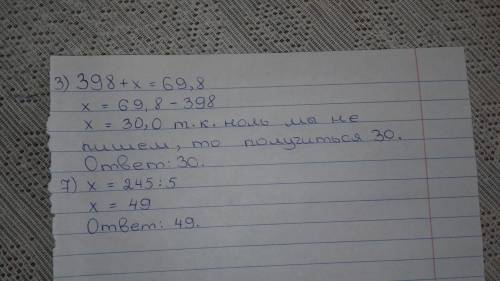 3) 398 + x = 69,8
x = 69,8 - 398
x = 30,0 т.к. ноль мы не
пишем, то получиться 30.
Ответ: 30.
7) x = 245 : 5
x = 49
Ответ: 49.